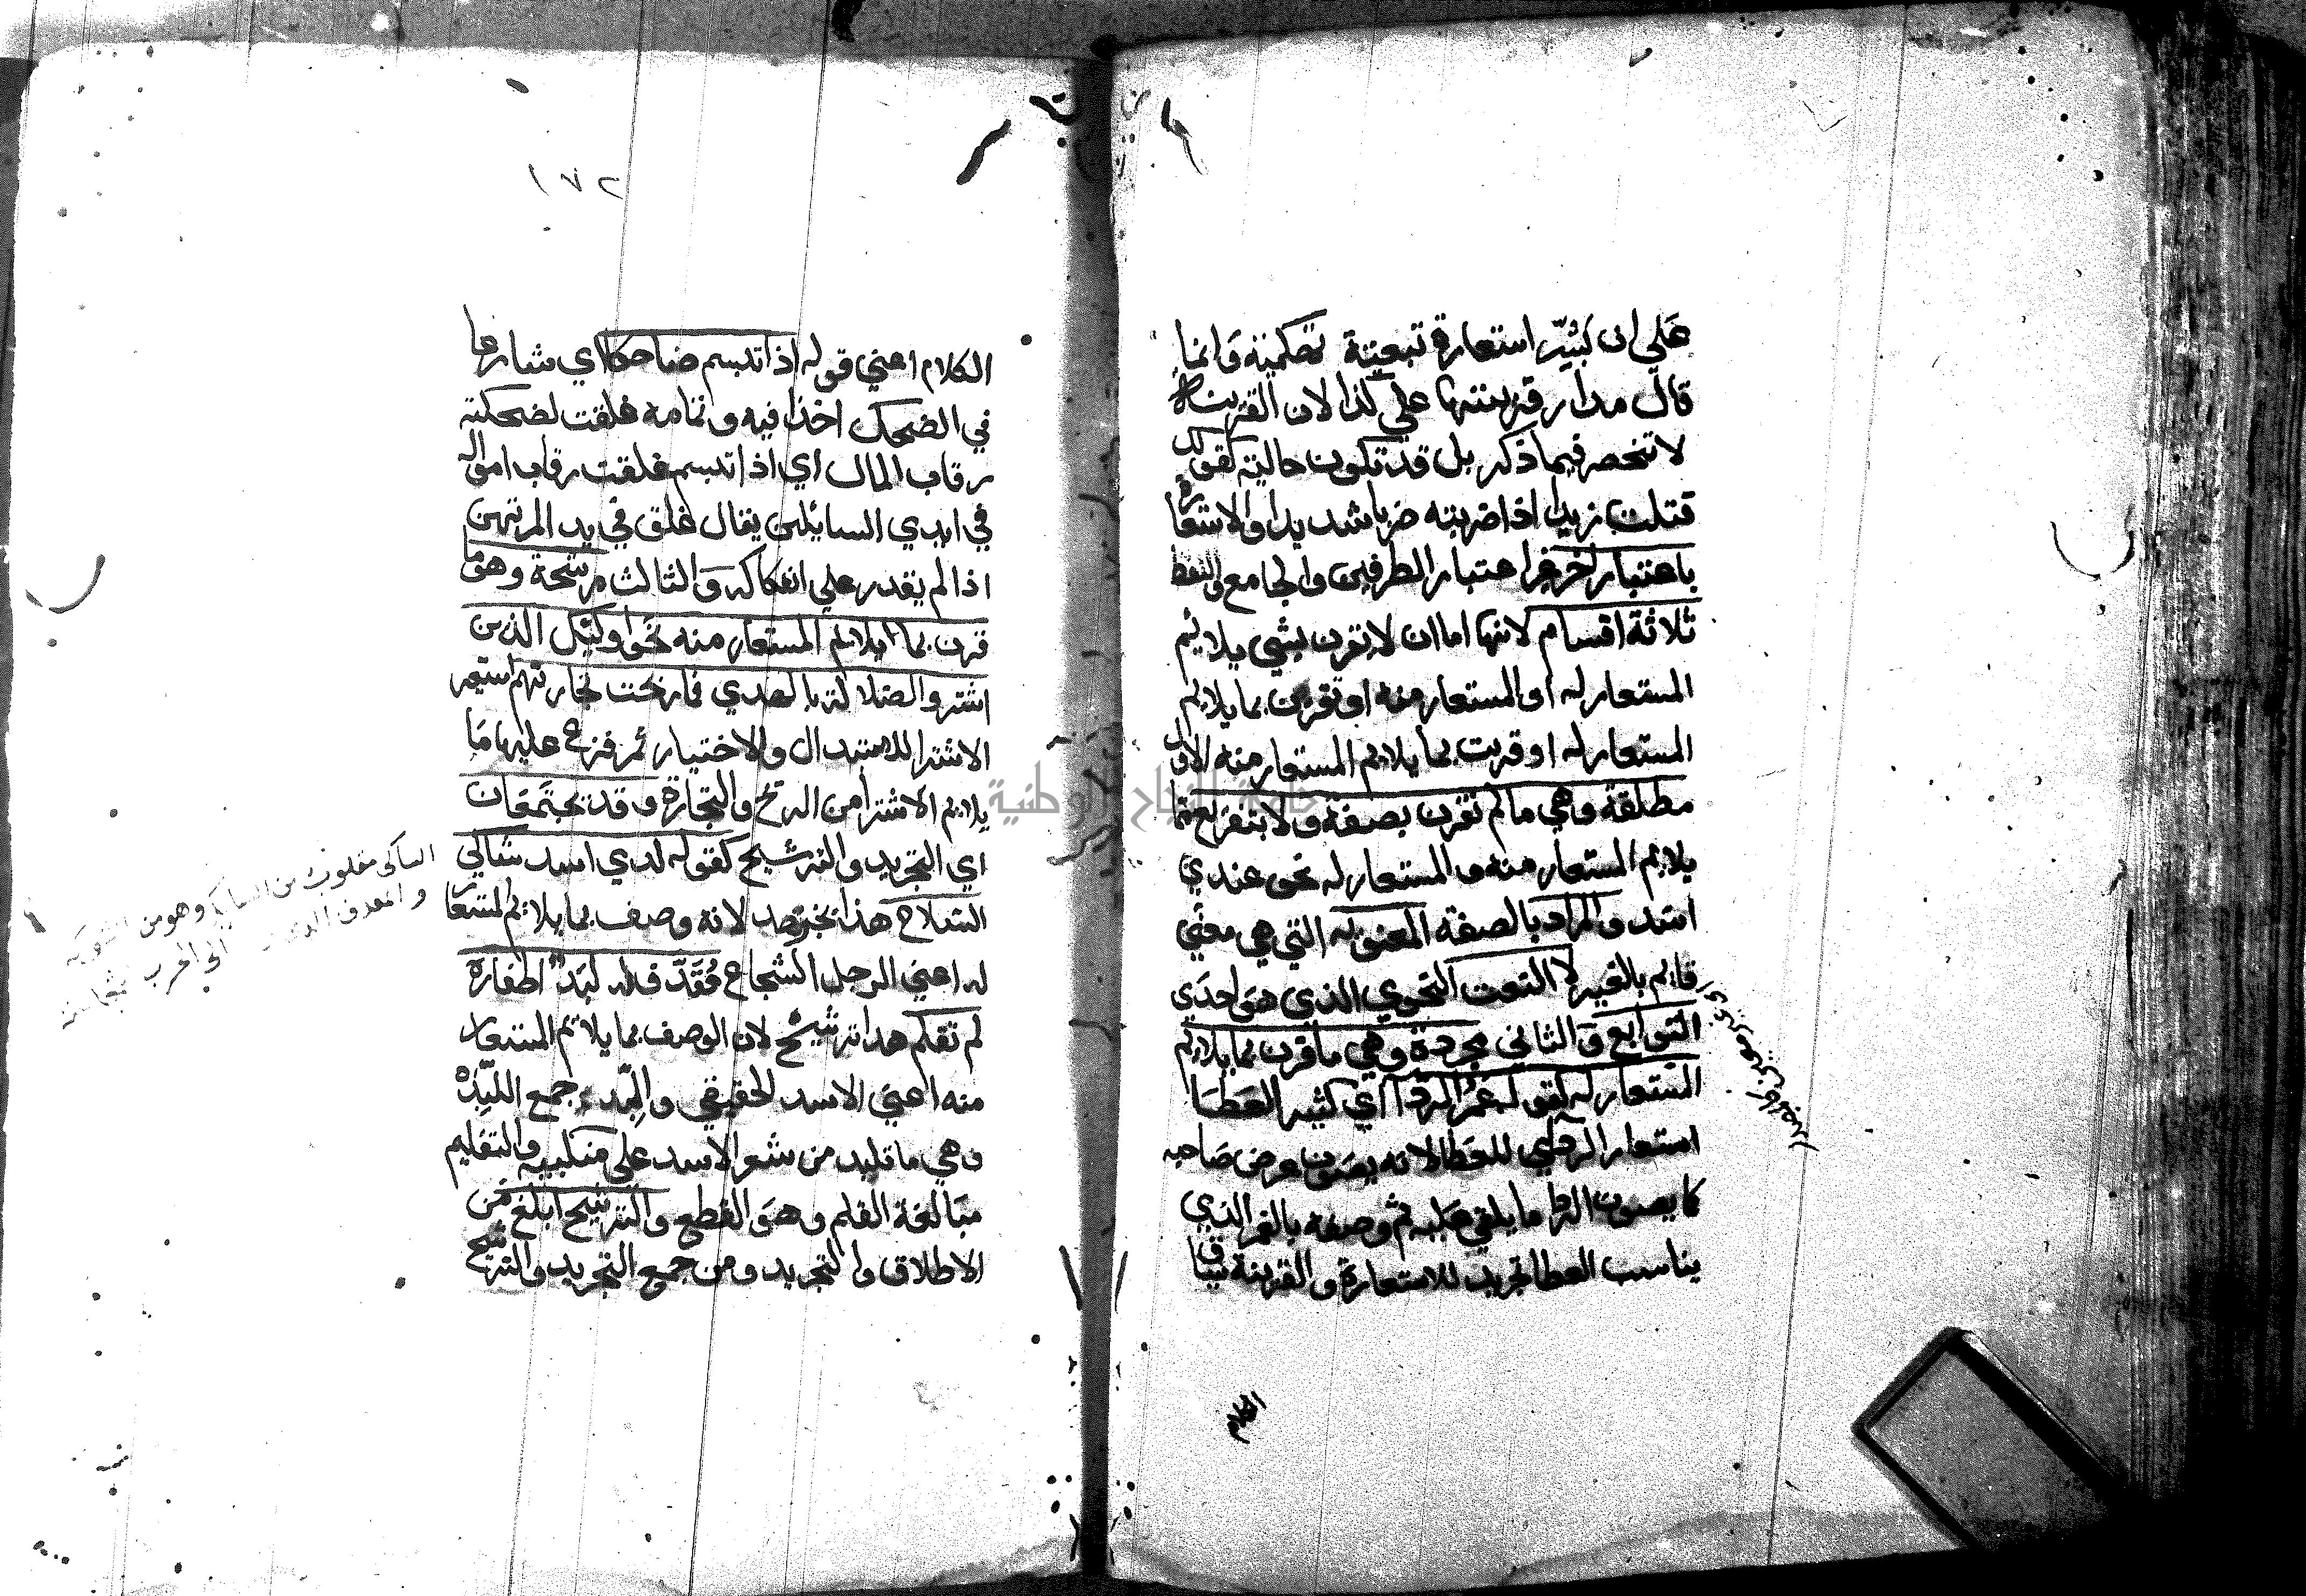 على ان بشر استعارة تبعية تهكمية وانما
قال مدار قرينتها على كذا لان القرينة
لا تنحصر فيما ذكر بل قد تكون حالية كقولك
قتلت زيدا اذا ضربته ضربا شديدا والاستعارة
باعتبار اخر غير اعتبار الطرفين والجامع واللفظ
ثلاثة اقسام لانها اما ان لا تقرن بشي يلائم
المستعار له او المستعار منه او تقرن بما يلايم
المستعار له او قرنت بما يلايم المستعار منه الاول
مطلقة وهي مالم تقرن بصفة ولا بتفريع مما
يلايم المستعار منه والمستعار له نحو عندي
اسد والمراد بالصفة المعنوية التي هي معنى
قايم بالغير لا النعت النحوي الذي هو احدى
التوابع والثاني مجردة وهي ما قرن بما يلايم
المستعار له كقوله غمر الردا اي كثير العطا
استعار الردآ للعطا لانه يصون عرض صاحبه
كما يصون الردا ما يلقى عليه ثم وصفه بالغمر الذي
يناسب العطا تجريد للاستعارة والقرينة سياق
الكلام
١٧٢
الكلام اعني قوله اذا تبسم ضاحكا اي شارعا
في الضحك اخذا فيه وتمامه غلقت لضحكته
رقاب المال اي اذا تبسم غلقت رقاب امواله
في ايدي السايلين يقال غلق في يد المرتهن
اذا لم يقدر على انفكاكه والثالث مرشحة وهو ما
قرن بما يلايم المستعار منه نحو اوليك الذين
اشتروا الضلالة بالهدي فما ربحت تجارتهم استعير
الاشترا للاستبدال والاختيار ثم فرع عليها ما
يلايم الاشترا من الربح والتجارة وقد يجتمعان
اي التجريد والترشيح كقوله لدي اسد شاكي
السلاح هذا تجريد لانه وصف بما يلايم المستعار
له اعني الرجل الشجاع مقذف له لبد اظفاره
لم تقلم هذا ترشيح لان الوصف بما يلائم المستعار
منه اعني الاسد الحقيقي واللبد جمع اللبدة
وهي ما تلبد من شعر الاسد على منكبيه والتقليم
مبالغة القلم وهو القطع والترشيح ابلغ من
الاطلاق والتجريد ومن جمع التجريد والترشيح
الشاكي مقلوب من الشايك وهو من الشوكة
جامعة النجاح الوطنية